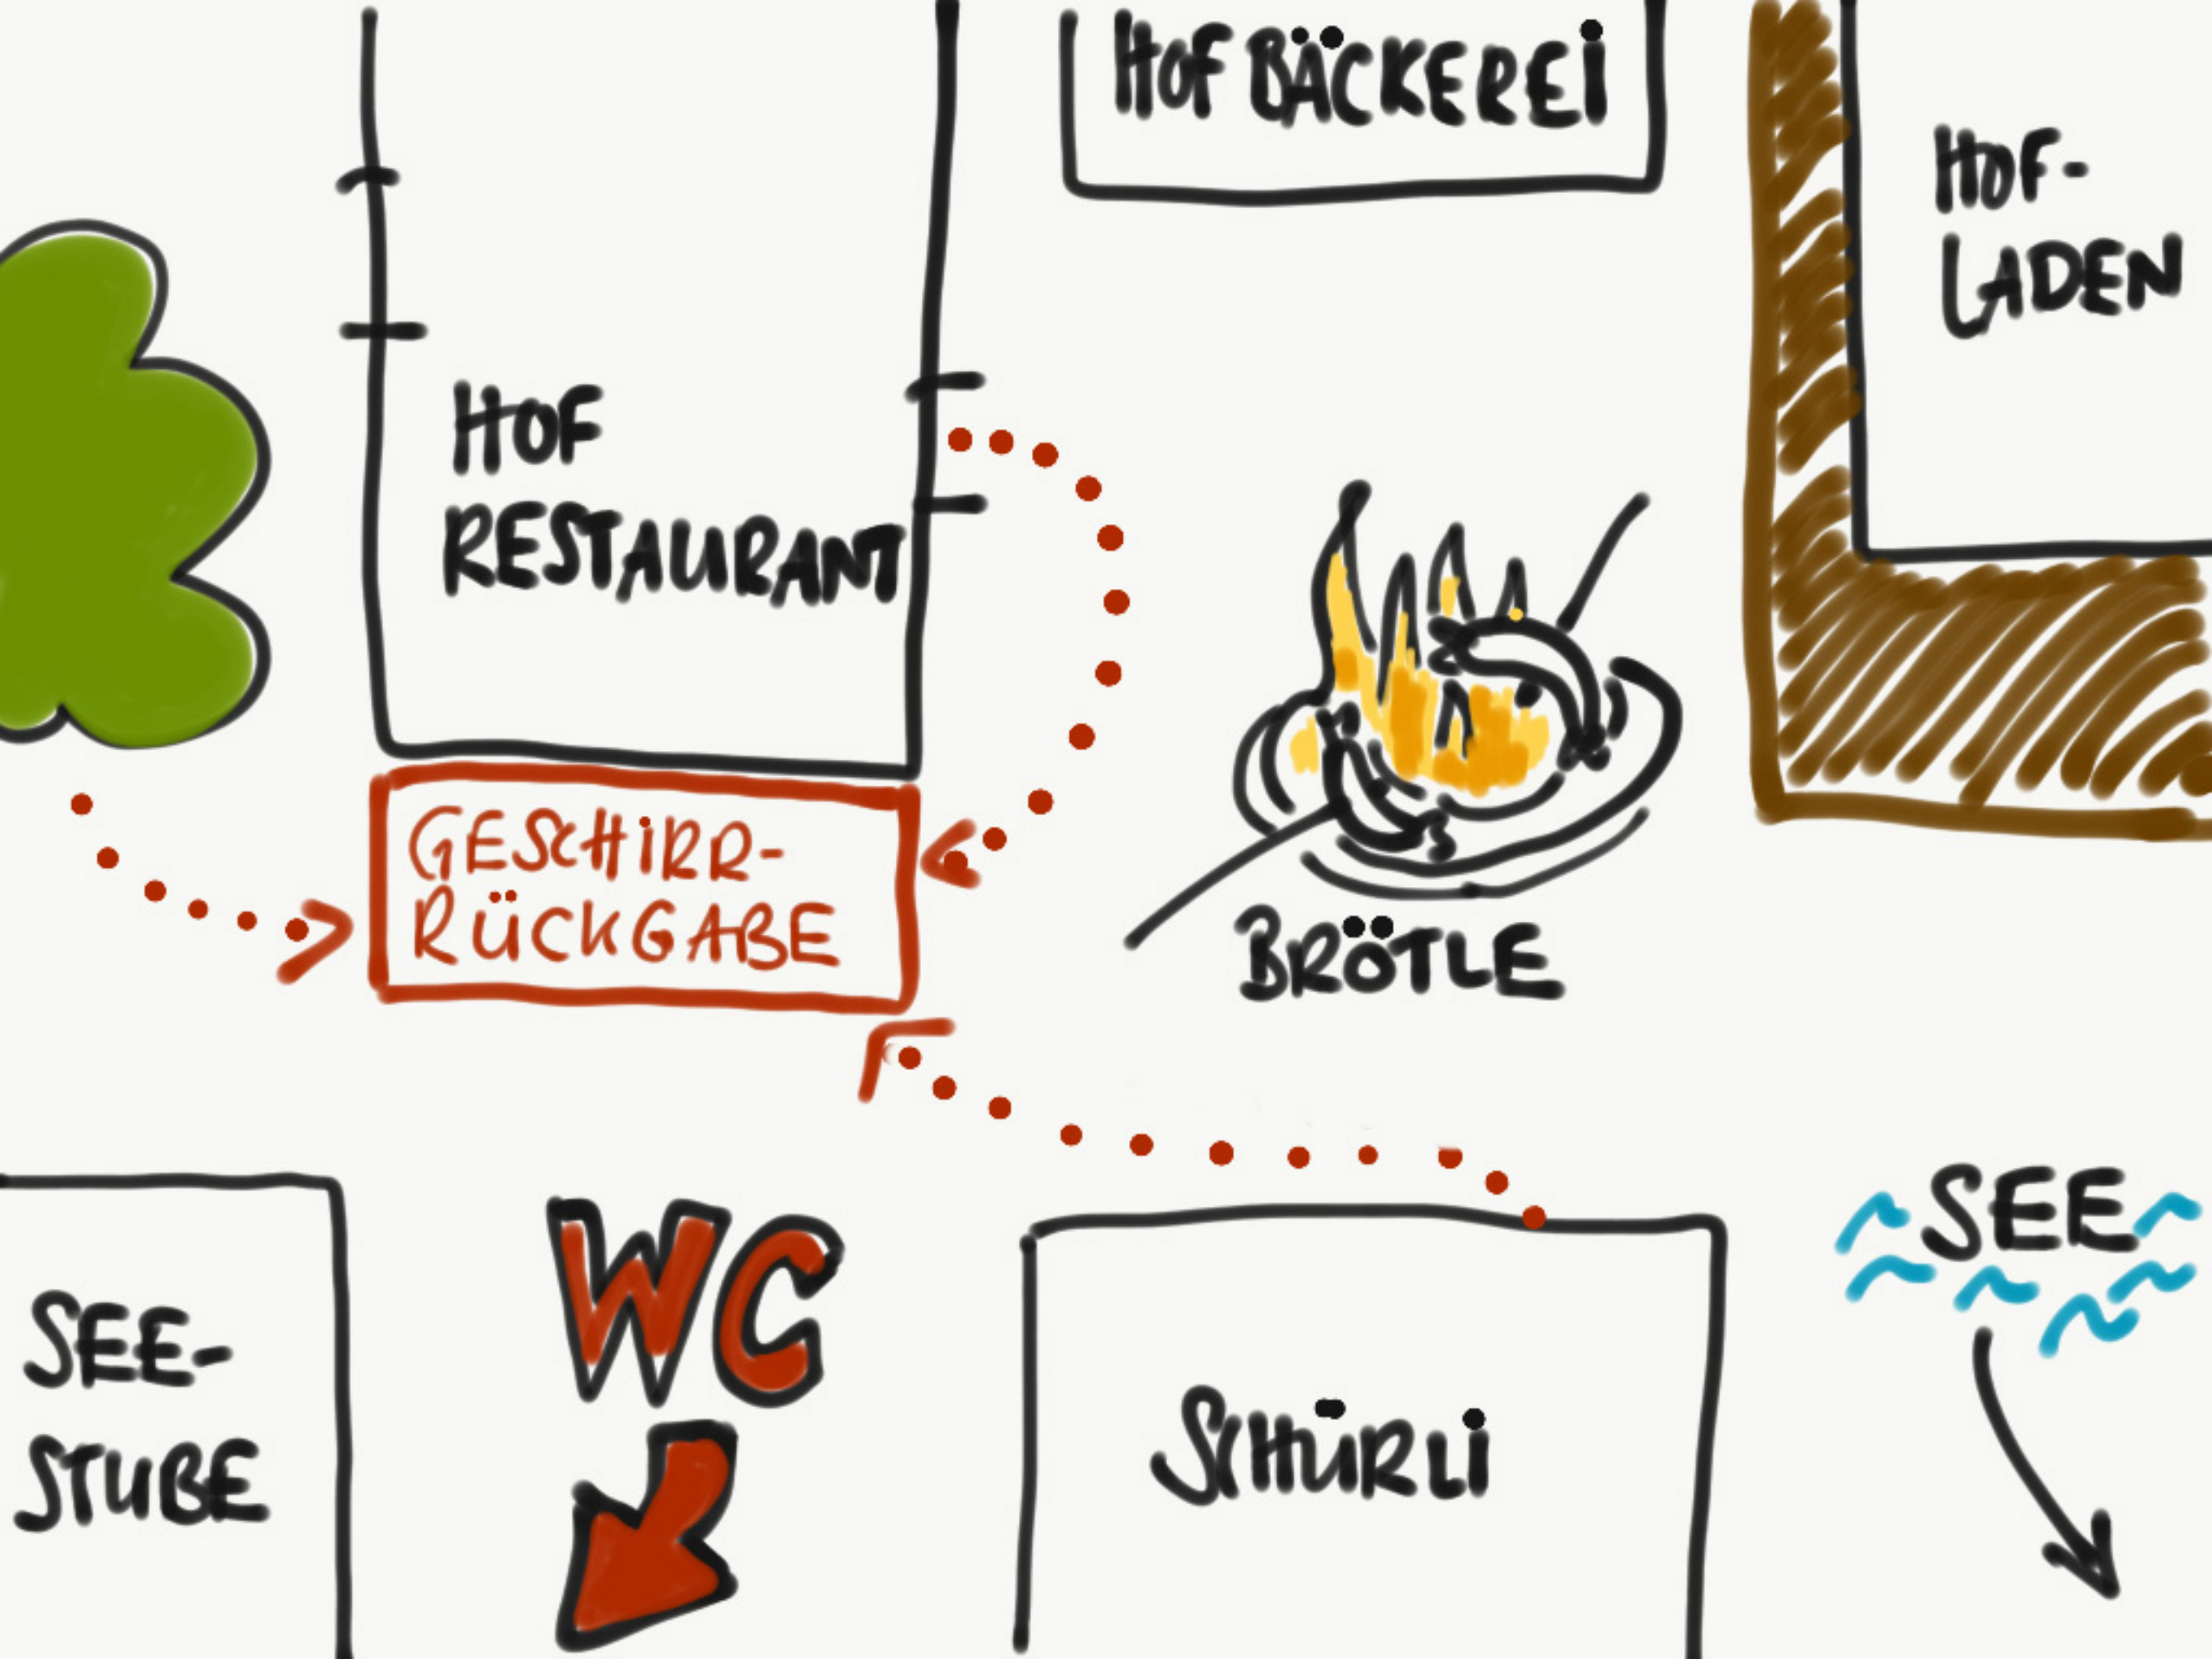 HOF BÄCKEREi
HOF-
LADEN
HOF
RESTAURANT
GESCHiRR-
RÜCKGABE
BRÖTLE
WC
SEE
SEE-
STUBE
SCHÜRLi